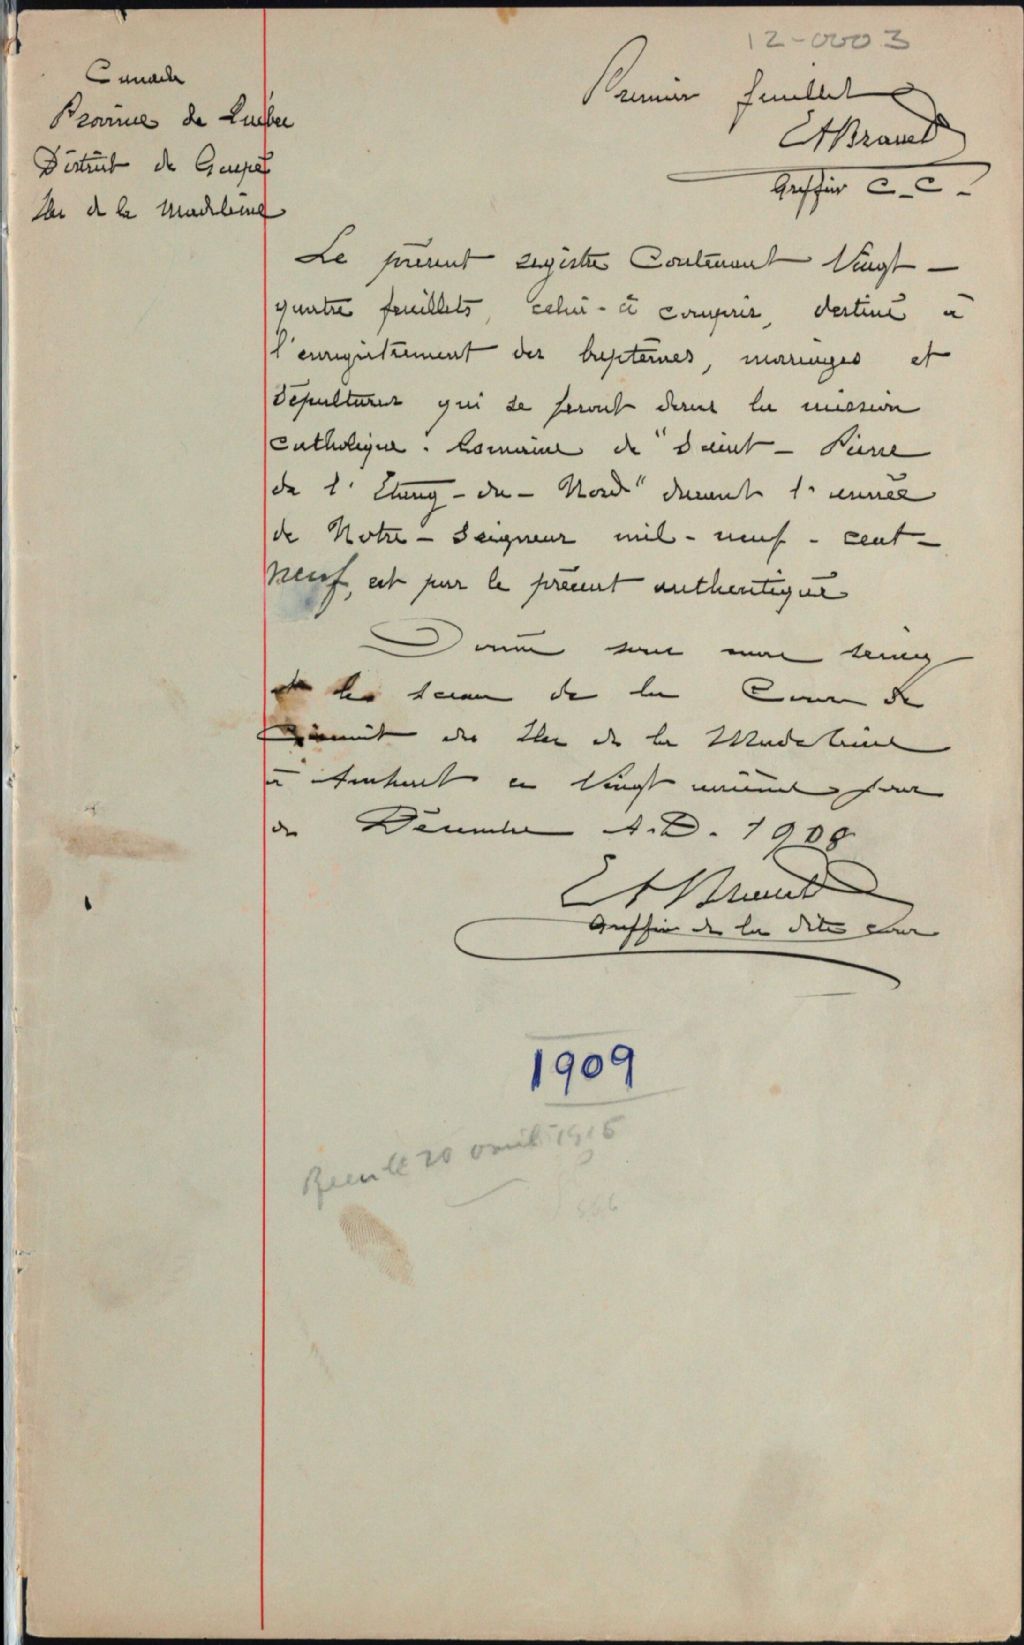 12-0003
Premier feuillet
Greffier C. C.
Canada
Province de Québec
District de Gaspé
Iles de la Madeleine
Le présent registre Contenant Vingt-
quatre feuillets, celui-ci compris, destiné à
l'enregistrement des baptêmes, mariages et
Sépultures qui se feront dans la mission
Catholique Romaine de "Saint-Pierre
de l'Etang-du-Nord" durant l'année
de Notre-Seigneur mil-neuf-cent-
neuf, est par le présent authentiqué
Donné sous mon seing
et le sceau de la Cour de
Circuit des Iles de la Madeleine
à Amherst ce Vingt unième jour
de Décembre A.D. 1908
Greffier de la dite cour
1909
20 avril